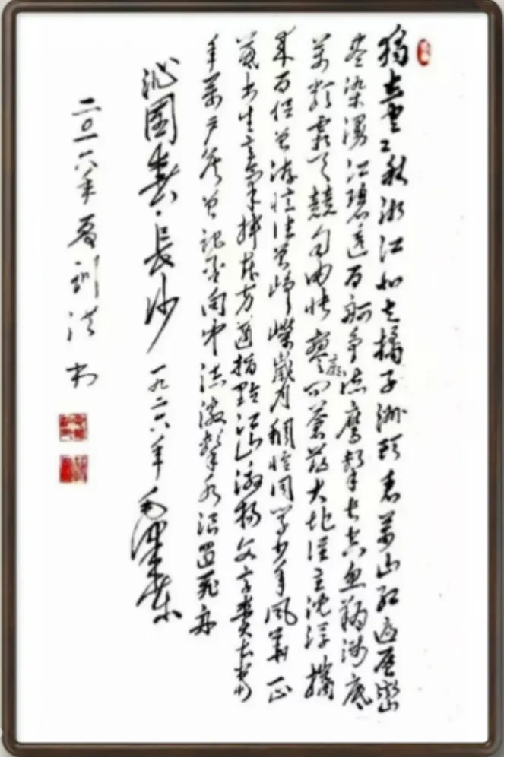 獨立寒秋湘江北去橘子洲頭看萬山红遍层
尽染漫江碧透百舸争流鹰擊长空鱼翔浅底
萬类霜天競自由怅寥廓问蒼茫大地谁主沈浮携
来百侣曾游忆往昔峥嵘岁月稠恰同学少年风华正
茂书生意气挥斥方遒指點江山激扬文字粪土当
年萬户侯曾记否向中流激擊水浪遏飛舟
沁園春·長沙 一九二六年 毛澤东
二〇一八年夏 训洪 书